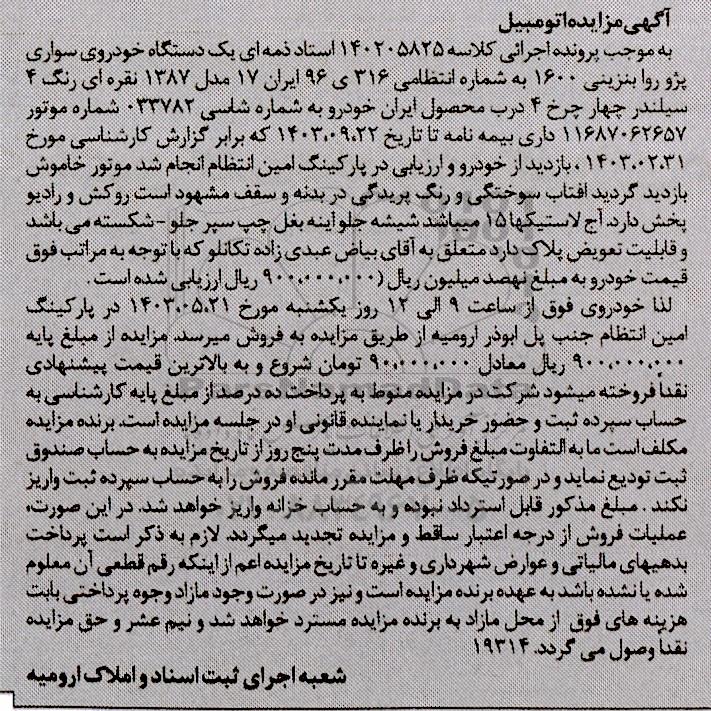 آگهی مزایده اتومبیل
به موجب پرونده اجرائی کلاسه ۱۴۰۲۰۵۸۲۵ استاد ذمه ای یک دستگاه خودروی سواری
پژو روا بنزینی ۱۶۰۰ به شماره انتظامی ۳۱۶ ی ۹۶ ایران ۱۷ مدل ۱۳۸۷ نقره ای رنگ ۴
سیلندر چهار چرخ ۴ درب محصول ایران خودرو به شماره شاسی ۰۳۳۷۸۲ شماره موتور
۱۱۶۸۷۰۶۲۶۵۷ داری بیمه نامه تا تاریخ ۱۴۰۳،۰۹،۲۲ که برابر گزارش کارشناسی مورخ
۱۴۰۳،۰۲،۳۱ ، بازدید از خودرو و ارزیابی در پارکینگ امین انتظام انجام شد موتور خاموش
بازدید گردید افتاب سوختگی و رنگ پریدگی در بدنه و سقف مشهود است روکش و رادیو
پخش دارد. آج لاستیکها ۱۵ میباشد شیشه جلو اینه بغل چپ سپر جلو -شکسته می باشد
و قابلیت تعویض پلاک دارد متعلق به آقای بیاض عبدی زاده تکانلو که با توجه به مراتب فوق
قیمت خودرو به مبلغ نهصد میلیون ریال (۹۰۰،۰۰۰،۰۰۰ ریال ارزیابی شده است .
لذا خودروی فوق از ساعت ۹ الی ۱۲ روز یکشنبه مورخ ۱۴۰۳،۰۵،۲۱ در پارکینگ
امین انتظام جنب پل ابوذر ارومیه از طریق مزایده به فروش میرسد. مزایده از مبلغ پایه
۹۰۰،۰۰۰،۰۰۰ ریال معادل ۹۰،۰۰۰،۰۰۰ تومان شروع و به بالاترین قیمت پیشنهادی
نقداً فروخته میشود شرکت در مزایده منوط به پرداخت ده درصد از مبلغ پایه کارشناسی به
حساب سپرده ثبت و حضور خریدار یا نماینده قانونی او در جلسه مزایده است. برنده مزایده
مکلف است ما به التفاوت مبلغ فروش را ظرف مدت پنج روز از تاریخ مزایده به حساب صندوق
ثبت تودیع نماید و در صورتیکه ظرف مهلت مقرر مانده فروش را به حساب سپرده ثبت واریز
نکند . مبلغ مذکور قابل استرداد نبوده و به حساب خزانه واریز خواهد شد. در این صورت،
عملیات فروش از درجه اعتبار ساقط و مزایده تجدید میگردد. لازم به ذکر است پرداخت
بدهیهای مالیاتی و عوارض شهرداری و غیره تا تاریخ مزایده اعم از اینکه رقم قطعی آن معلوم
شده یا نشده باشد به عهده برنده مزایده است و نیز در صورت وجود مازاد وجوه پرداختی بابت
هزینه های فوق از محل مازاد به برنده مزایده مسترد خواهد شد و نیم عشر و حق مزایده
نقداً وصول می گردد. ۱۹۳۱۴
شعبه اجرای ثبت اسناد و املاک ارومیه